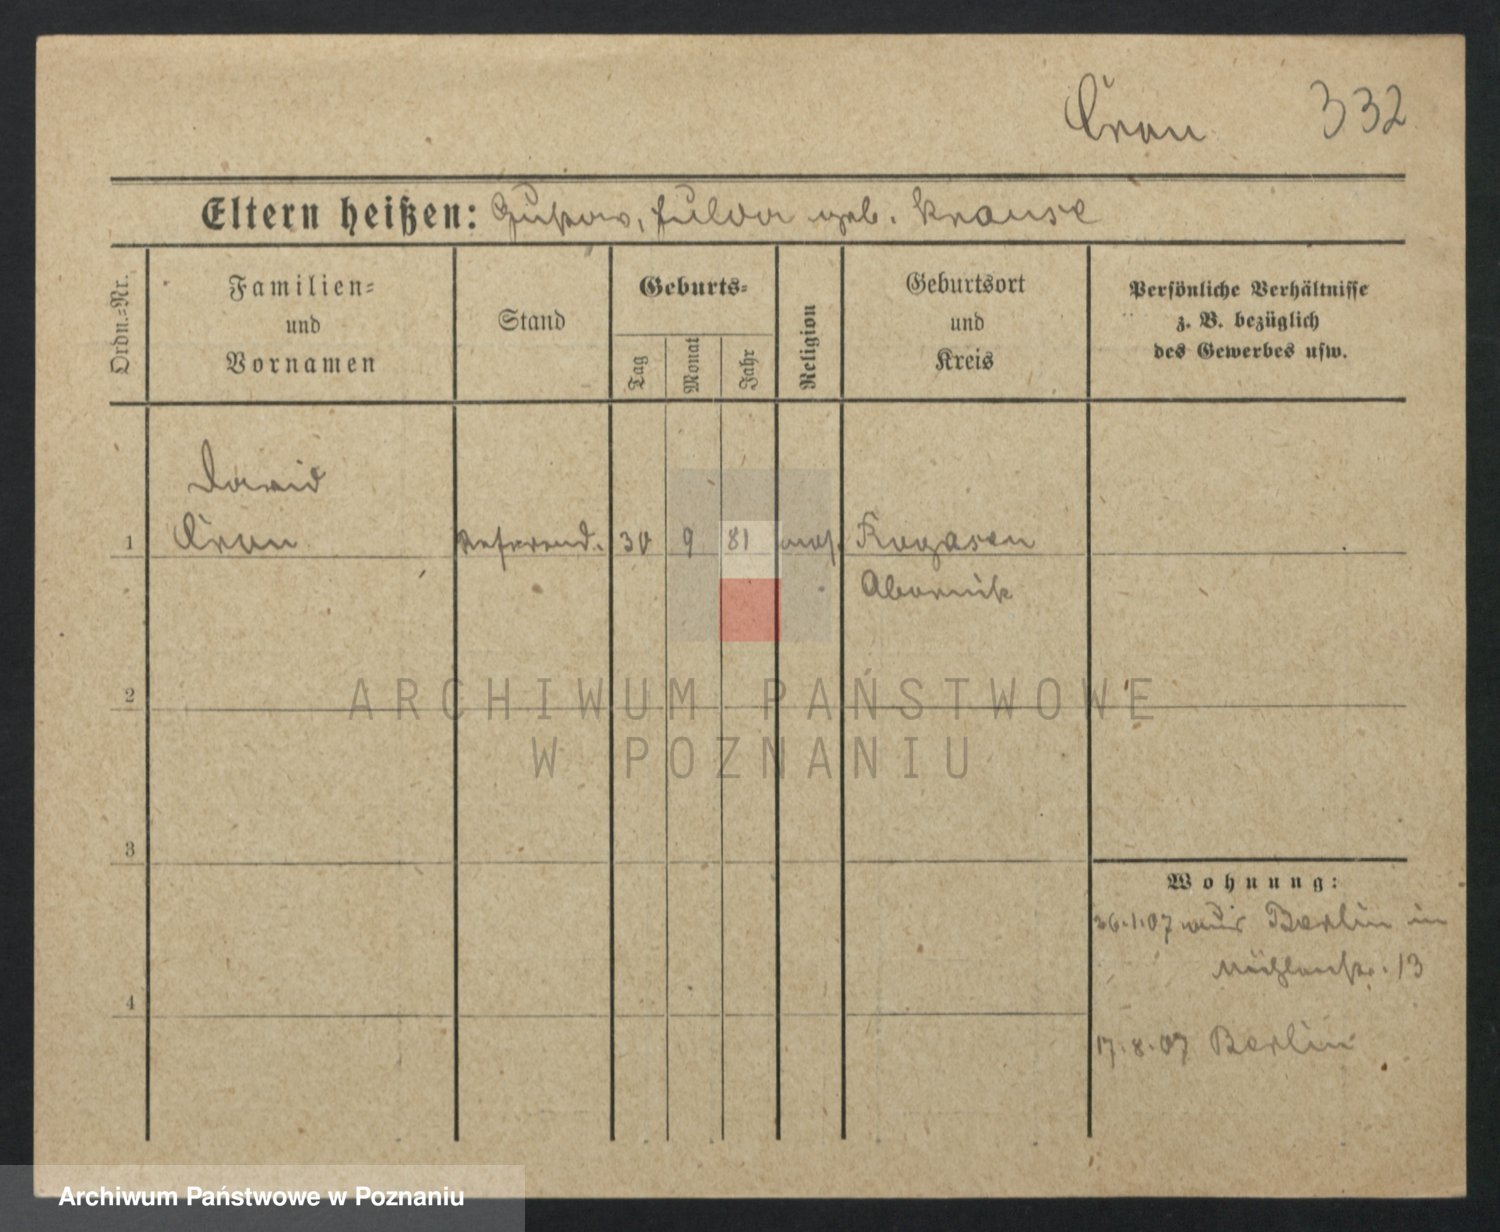 Cron 332
Eltern heißen: Gustav, Fulda geb. Krause
Ordn.-Nr.
Familien-
und
Vornamen
Stand
Geburts-
Tag
Monat
Jahr
Religion
Geburtsort
und
Kreis
Persönliche Verhältnisse
z. B. bezüglich
des Gewerbes usw.
David
1 Cron Referend. 30 9 81 mos. Rogasen
Obornik
2
ARCHIWUM PAŃSTWOWE
W POZNANIU
3
Wohnung:
26.1.07 aus Berlin in
Mühlenstr. 13
4
17.8.07 Berlin
Archiwum Państwowe w Poznaniu